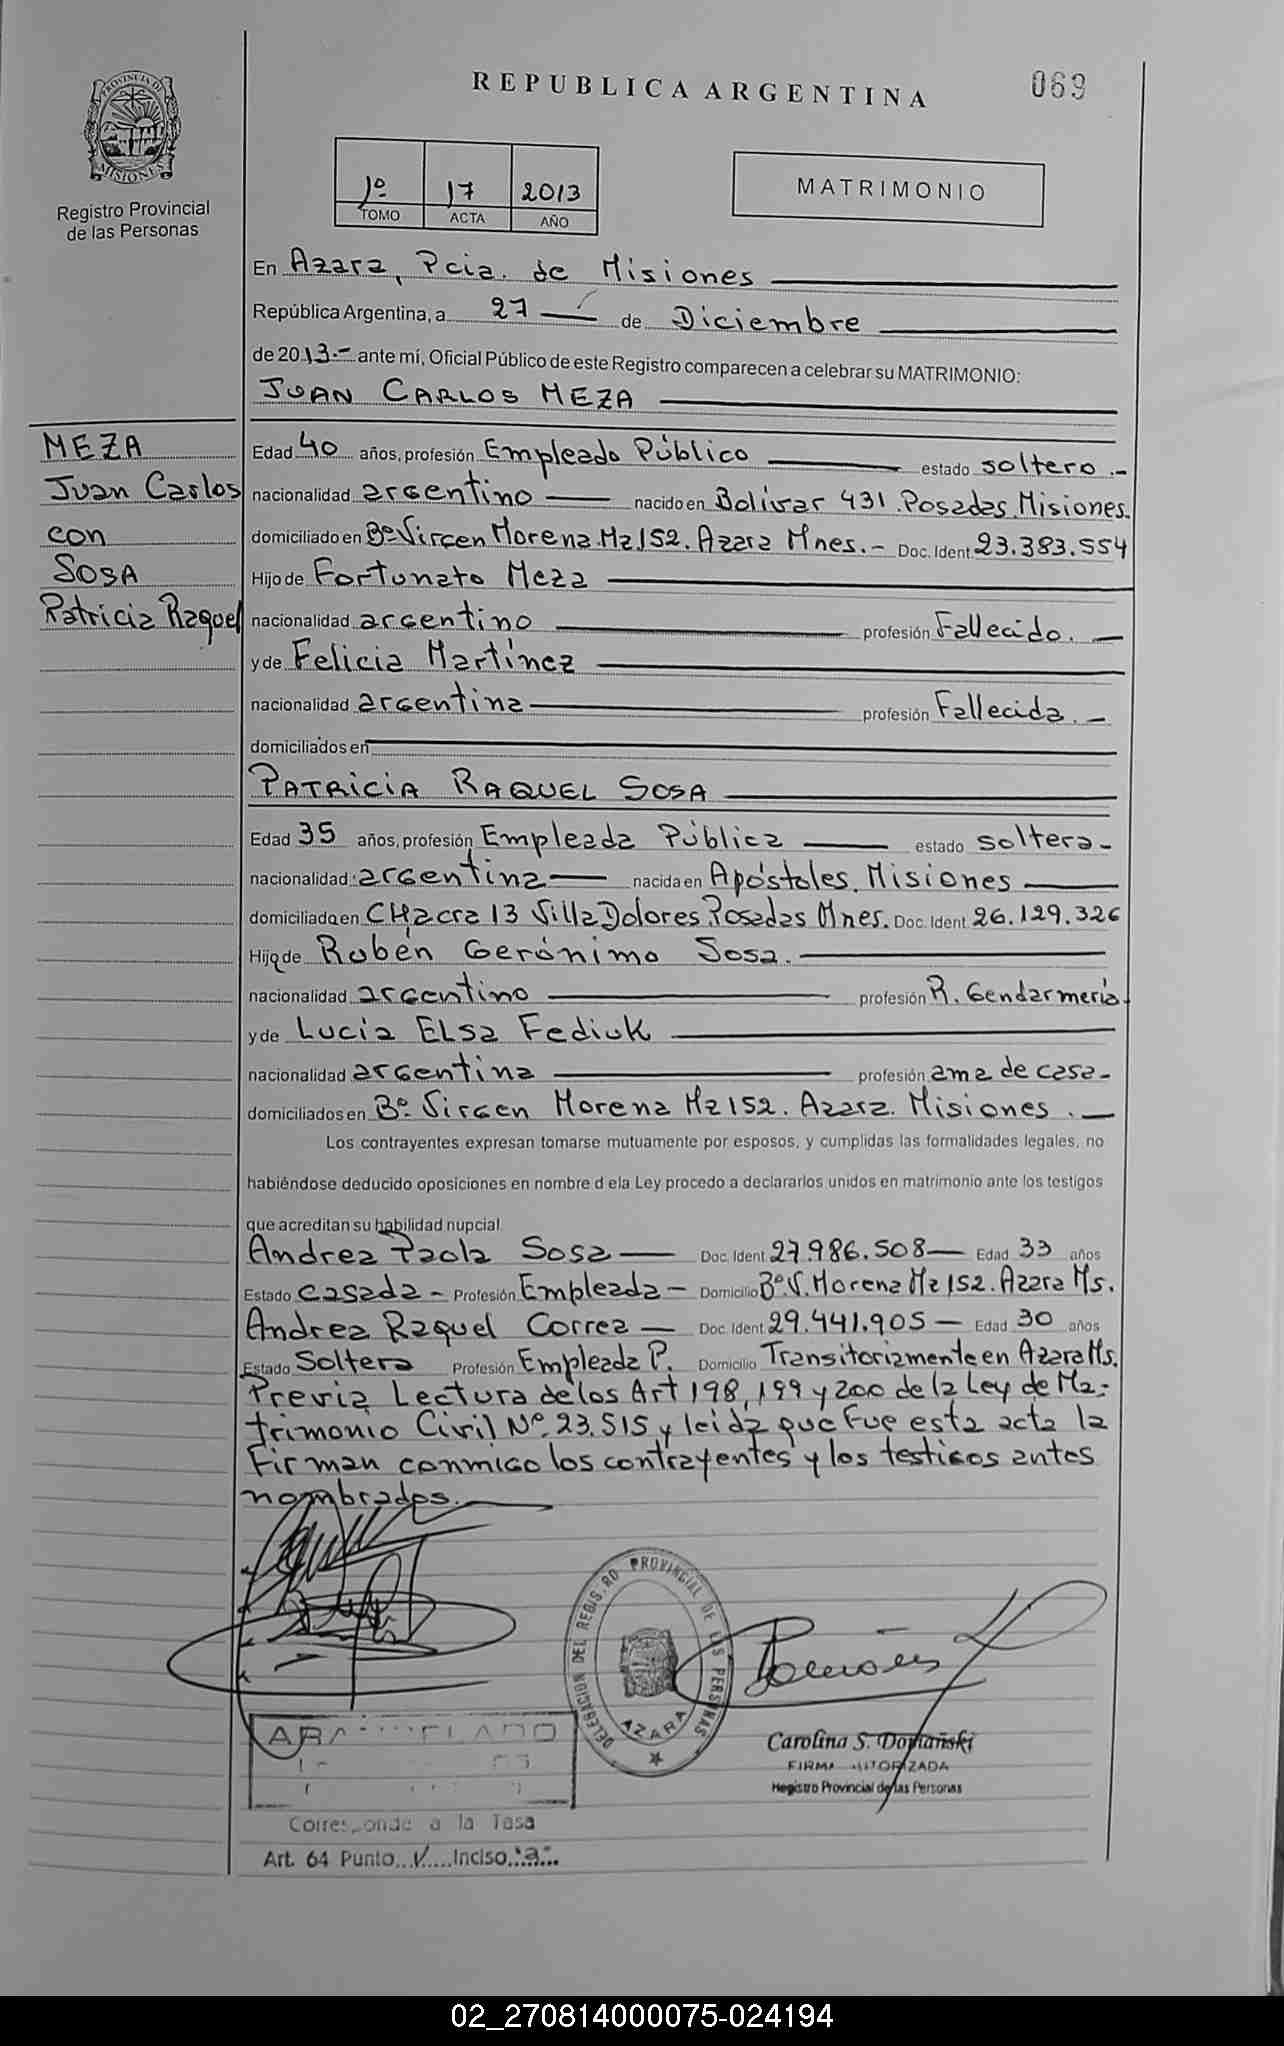 REPUBLICA ARGENTINA
069
PROVINCIA DE MISIONES
Registro Provincial
de las Personas
1º 17 2013
TOMO ACTA AÑO
MATRIMONIO
En Azara, Pcia. de Misiones
República Argentina, a 27 de Diciembre
de 2013.- ante mí, Oficial Público de este Registro comparecen a celebrar su MATRIMONIO:
JUAN CARLOS MEZA
MEZA
Juan Carlos
con
SOSA
Patricia Raquel
Edad 40 años, profesión Empleado Público estado soltero.-
nacionalidad argentino nacido en Bolívar 431. Posadas, Misiones.
domiciliado en Bº Virgen Morena. Mz 152. Azara Mnes.- Doc. Ident. 23.383.554
Hijo de Fortunato Meza
nacionalidad argentino profesión Fallecido.-
y de Felicia Martínez
nacionalidad argentina profesión Fallecida.-
domiciliados en
PATRICIA RAQUEL SOSA
Edad 35 años, profesión Empleada Pública estado soltera-
nacionalidad argentina nacida en Apóstoles. Misiones
domiciliada en CHacra 13 Villa Dolores, Posadas Mnes. Doc. Ident. 26.129.326
Hija de Rubén Gerónimo Sosa.
nacionalidad argentino profesión R. Gendarmería
y de Lucia ELsa Fediuk
nacionalidad argentina profesión ama de casa-
domiciliados en Bº Virgen Morena Mz 152. Azara. Misiones.-
Los contrayentes expresan tomarse mutuamente por esposos, y cumplidas las formalidades legales, no
habiéndose deducido oposiciones en nombre d ela Ley procedo a declararlos unidos en matrimonio ante los testigos
que acreditan su habilidad nupcial.
Andrea Paola Sosa Doc. Ident. 27.986.508 Edad 33 años
Estado casada - Profesión Empleada - Domicilio Bº V. Morena Mz 152. Azara Ms.
Andrea Raquel Correa Doc. Ident. 29.441.905 Edad 30 años
Estado Soltera Profesión Empleada P. Domicilio Transitoriamente en Azara Ms.
Previa Lectura de los Art 198, 199 y 200 de la Ley de Ma-
trimonio Civil Nº 23.515 y leida que fue esta acta la
Firman conmigo los contrayentes y los testigos antes
nombrados.
DELEGACION DEL REGISTRO PROVINCIAL DE LAS PERSONAS
AZARA
Carolina S. Domañski
FIRMA AUTORIZADA
Registro Provincial de las Personas
Corresponde a la Tasa
Art. 64 Punto...V....Inciso."a"...
02_270814000075-024194